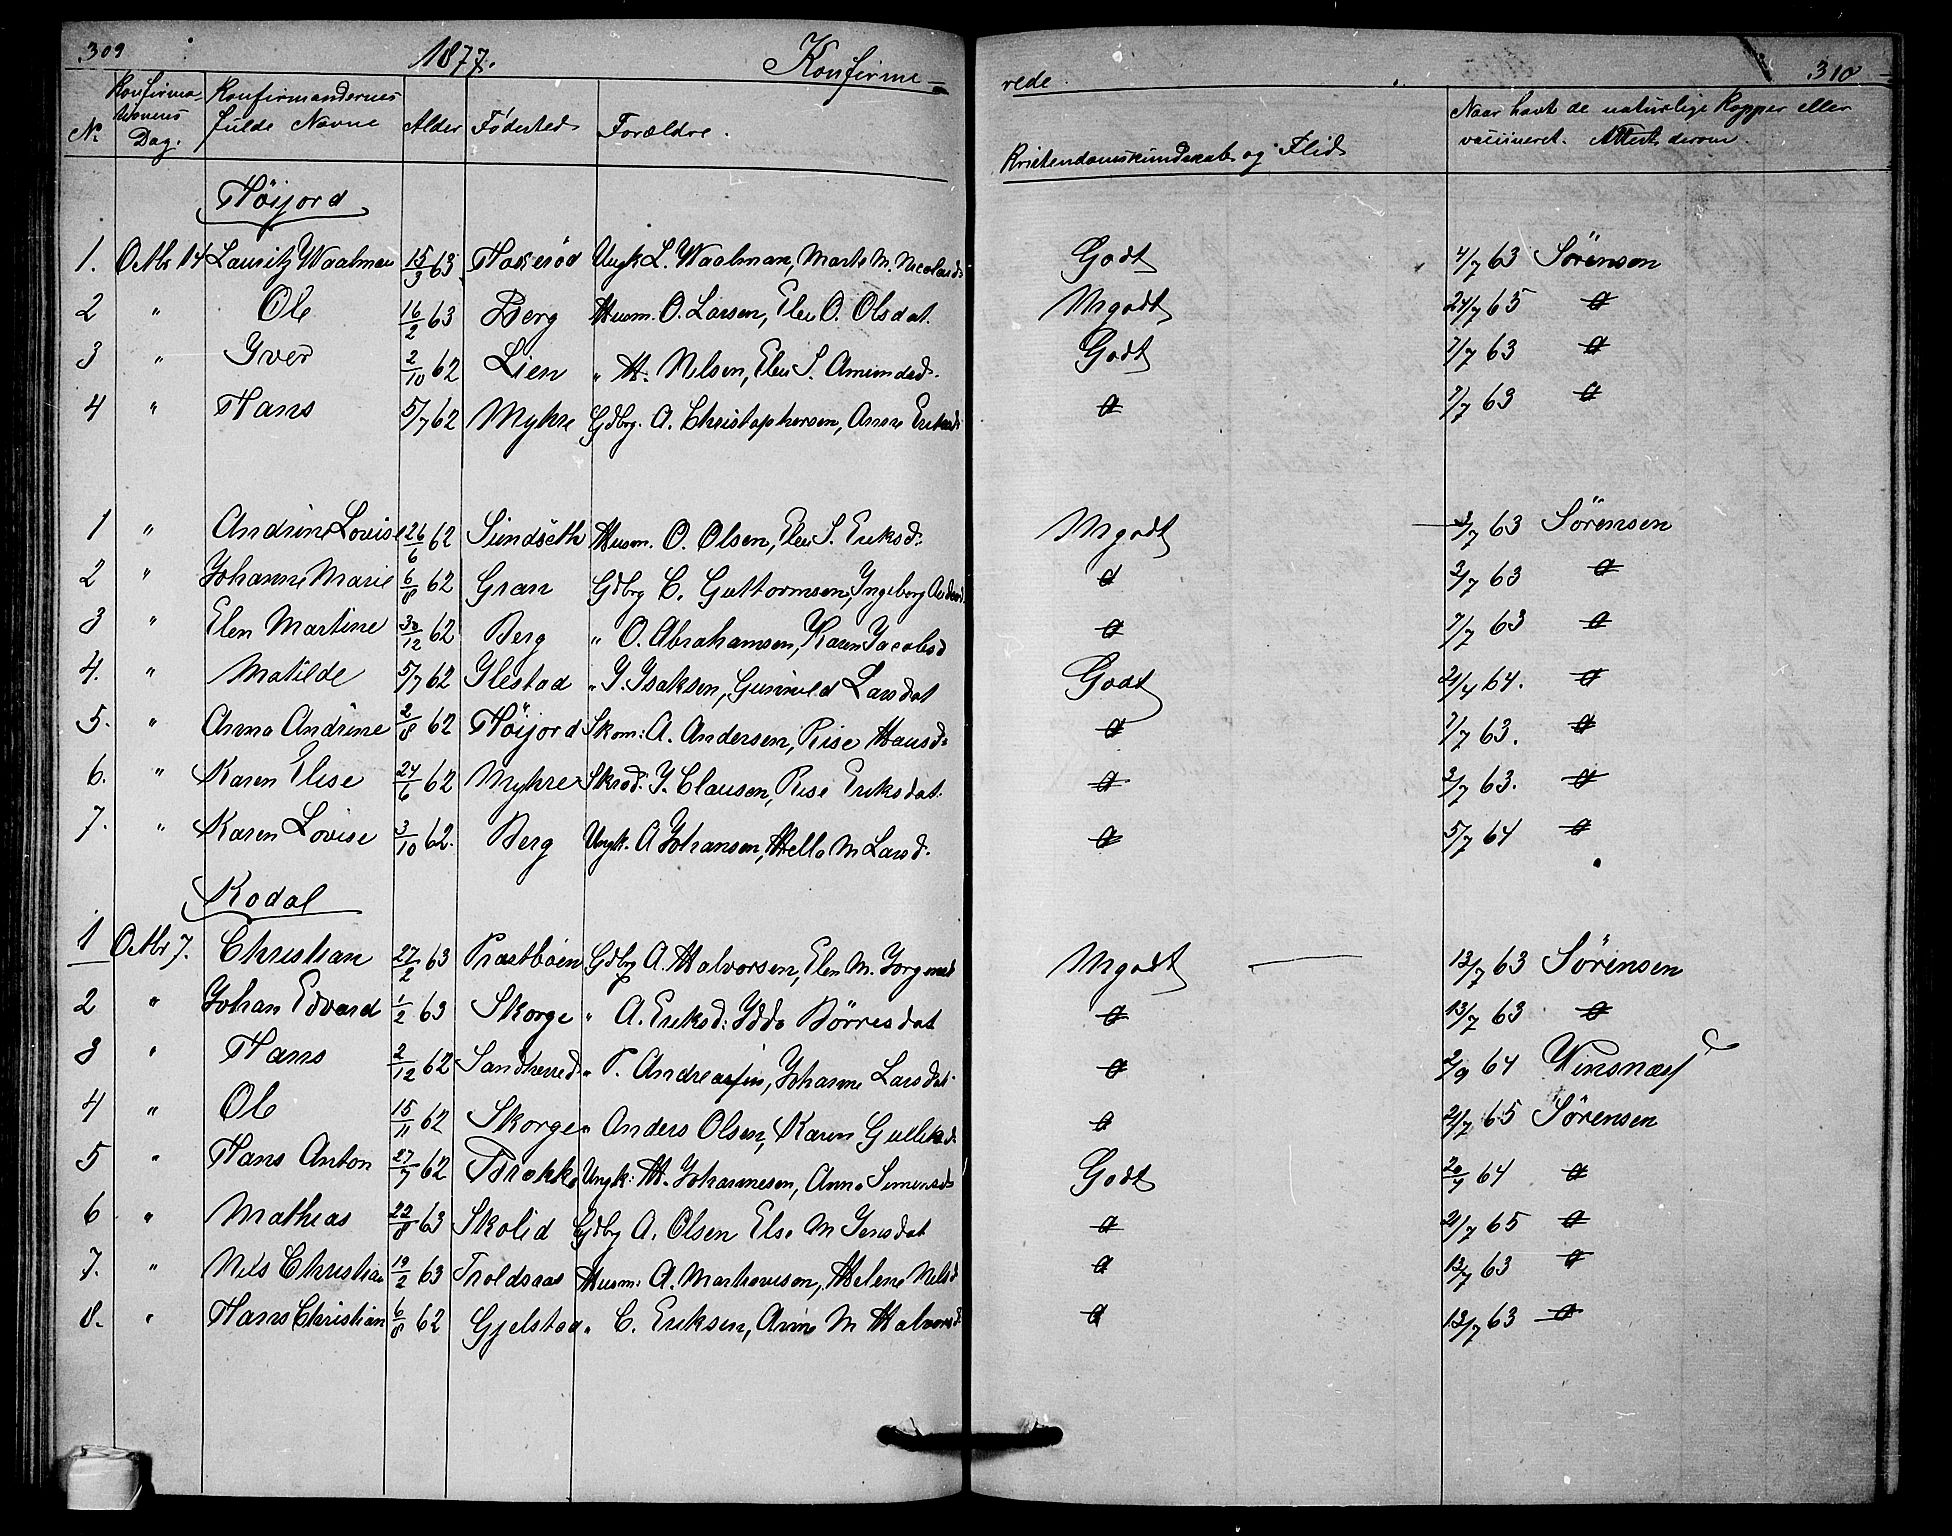 309 1877. Konfirme-
rede 310
No Konfirmationens Dag. Konfirmandernes fulde Navne Alder Fødested Forældre. Kristendomskundskab og Flid Naar havt de naturlige Kopper eller vaccineret. Attest derom.
Höijord
1. Octbr 14 Lauritz Waalman 15/3 63 Haserød Ungk L. Waalman, Marth M. Nicolaisd. Godt 4/7 63 Sörensen
2 " Ole 16/2 63 Berg Husm. O. Larsen, Elen O. Olsdat. Mgodt 24/7 65 d
3 " Iver 2/10 62 Lien " H. Nilsen, Elen S. Amundsd. Godt 7/7 63 d
4 " Hans 5/7 62 Myhre Gdbrg. A. Christophersen, Anne Eriksd. d 7/7 63 d
1 " Andrine Lovise 26/6 62 Sundseth Husm. O. Olsen, Elen S. Eriksd. Mgodt 3/7 63 Sörensen
2 " Johanne Marie 6/8 62 Gran Gdbrg C. Guttormsen, Ingeborg d 3/7 63 d
3 " Elen Martine 30/12 62 Berg " O. Abrahamsen, Karen Jacobsd d 7/7 63 d
4. " Matilde 5/7 62 Ilestad " I. Isaksen, Gunnild Larsdat Godt 21/4 64. d
5. " Anna Andrine 2/8 62 Höijord Skom: A. Andersen, Rise Hansd. d 7/7 63. d
6. " Karen Elise 24/6 62 Myhre Skrød: J. Clausen, Rise Eriksdat. d 3/7 63. d
7. " Karen Lovise 3/10 62. Berg Ungk. A Johansen, Helle M Larsd. d 5/7 64 d
Kodal
1 Octbr 7. Christian 27/2 63 Præstbøen Gdbrg A. Halvorsen, Elen M. Jørgensd Mgodt 13/7 63 Sörensen
2 " Johan Edvard 1/2 63 Skorge " A. Eriksd: Idde Börresdat d 13/7 63 d
3 " Hans 2/12 62 Sandherred " P. Andreassen, Johanne Larsdat. d 2/9 64 Winsnæs
4 " Ole 15/11 62 Skorge " Anders Olsen, Karen Gulliksd. d 21/7 65 Sörensen
5 " Hans Anton 27/7 62 Trokke Ungk: H. Johannesen, Anne Simensd Godt 20/7 64 d
6 " Mathias 22/8 63 Skolid Gdbrg A. Olsen Else M Jensdat d 21/7 65 d
7. " Nils Christian 19/2 63 Troldsaas Husm: A. Marthovisen, Helene Nilsd d 13/7 63 d
8. " Hans Christian 6/8 62 Gjelstad " C. Eriksen, Anne M Halvorsd. d 13/7 63 d